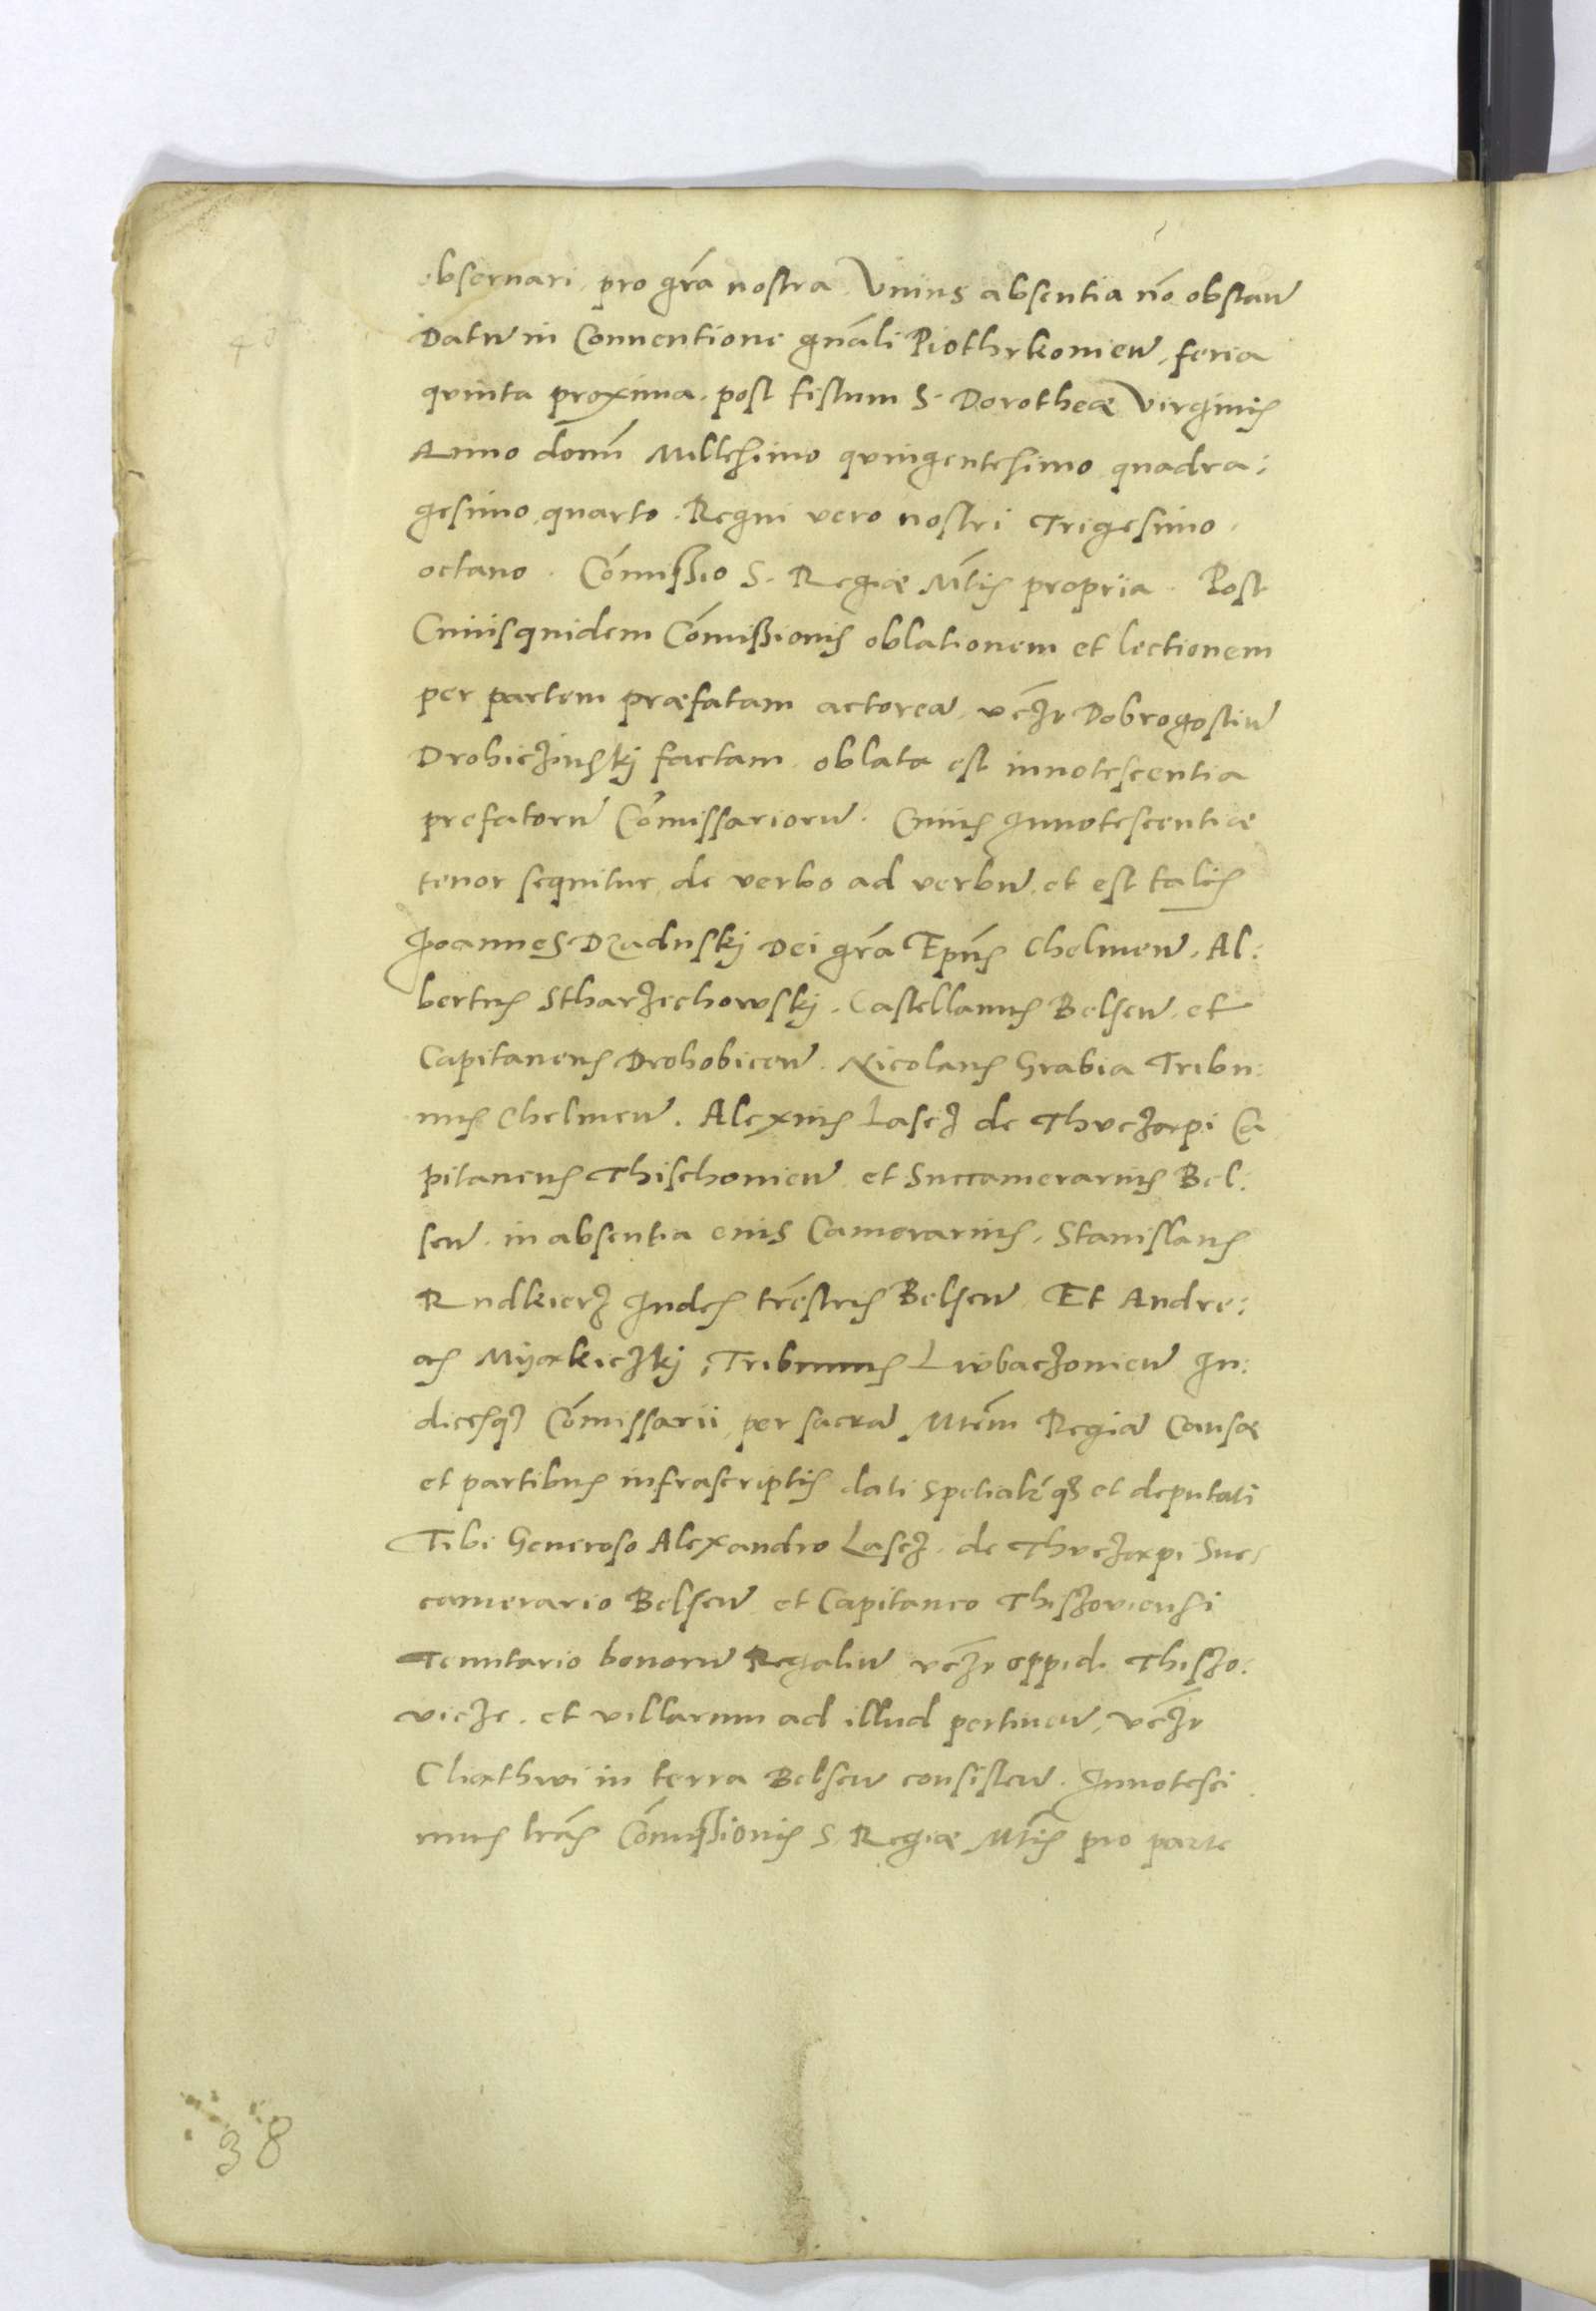 observari pro grã nostra Vnius absentia nõ obstan̄
Datū in Conventione gnãli Piothrkovien̄, feria
quinta proxima post festum S. Dorotheæ Virginis
Anno domi Millesimo quingentesimo quadra:
gesimo quarto. Regni vero nostri Trigesimo
octavo. Cõmissio S. Regiæ Mtis propria. Post
Cuiusquidem Cõmissionis oblationem et lectionem
per partem præfatam actoreā, vcƷt Dobrogostiū
Drohiczinskj factam oblata est innotescentia
prefatorū Cõmissariorū. Cuius Innotescentiæ
tenor sequitur de verbo ad verbū, et est talis
Joannes Dzaduskj Dei grã Epũs Chelmen̄. Al:
bertus Stharzechowskj. Castellanus Belsen̄ et
Capitaneus Drohobicen̄. Nicolaus Grabia Tribu:
nus Chelmen̄. Alexius Lascz de Thuczapi Ca
pitaneus Thischovien̄ et Succamerarius Bel:
sen̄ in absentia eius Camerarius, Stanislaus
Rudkierz Judex trẽstris Belsen̄ Et Andre:
as Myækiczkj Tribunus Lwbaczovien̄ Ju:
dicesqʒ Cõmissarii per sacrā Mtẽm Regiā Causæ
et partibus infrascriptis dati spetialr̃qʒ et deputati
Tibi Generoso Alexandro Lascz de Thuczapi Suc:
camerario Belsen̄ et Capitaneo Thiszoviensi
Tenutario bonorū Regaliū vcƷt oppid. Thiszo:
vicze. et villarum ad illud pertinen̄, vcƷt
Cliathwi in terra Belsen̄ consisten̄. Innotesci
mus lrãs Cõmissionis S. Regiæ Mtis pro parte
38